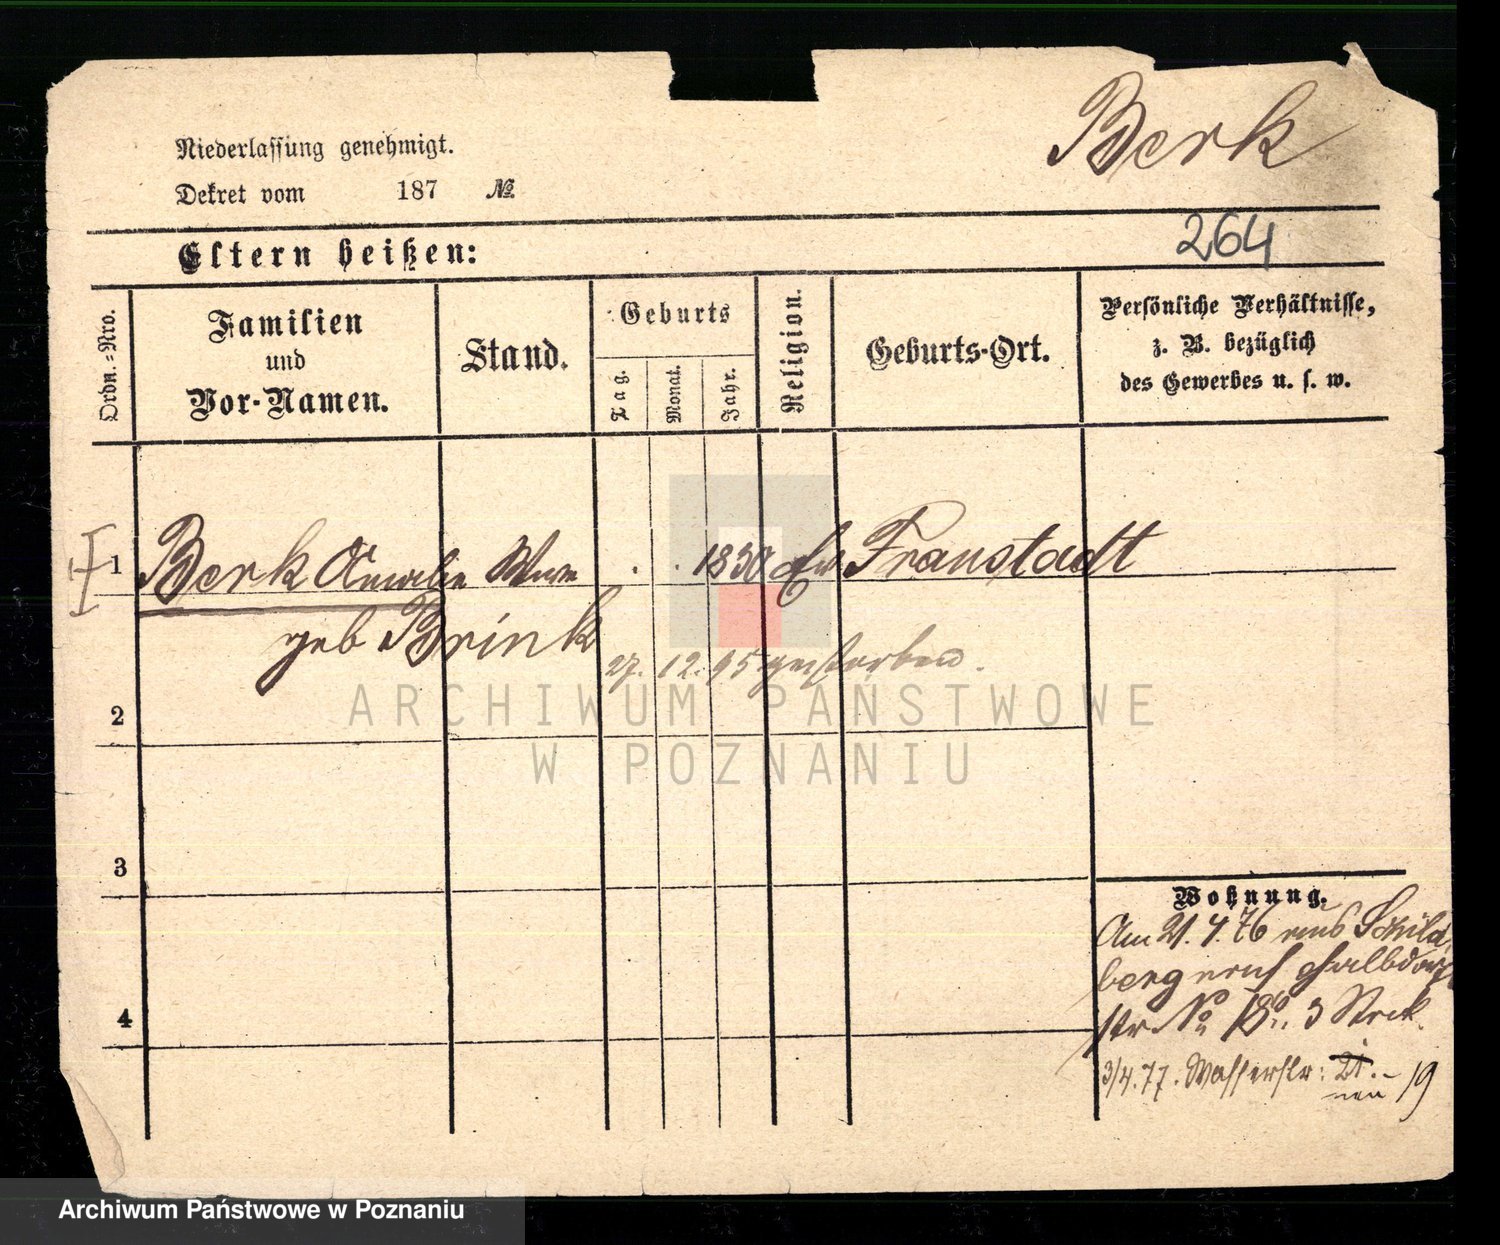 Berk
Niederlassung genehmigt.
Dekret vom 187 №
264
Eltern heißen:
Ordn.-Nro.
Familien
und
Vor-Namen.
Stand.
Geburts
Tag.
Monat.
Jahr.
Religion.
Geburts-Ort.
Persönliche Verhältnisse,
z. B. bezüglich
des Gewerbes u. s. w.
1 Berk Amalie Wwe . . 1830 Ev Fraustadt
geb Brink
27. 12. 95 gestorben.
2
3
4
Wohnung.
Am 21. 4. 76 aus Schild-
berg nach Halbdorf
str. № 18 3 Strk.
3/4.77. Wasserstr: 21. - 19
neu
ARCHIWUM PAŃSTWOWE
W POZNANIU
Archiwum Państwowe w Poznaniu